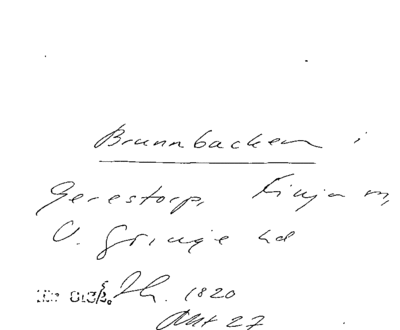 Brunnbacken i
Gerestorp, Finja sn,
V. Göinge hd
1820
Akt 27